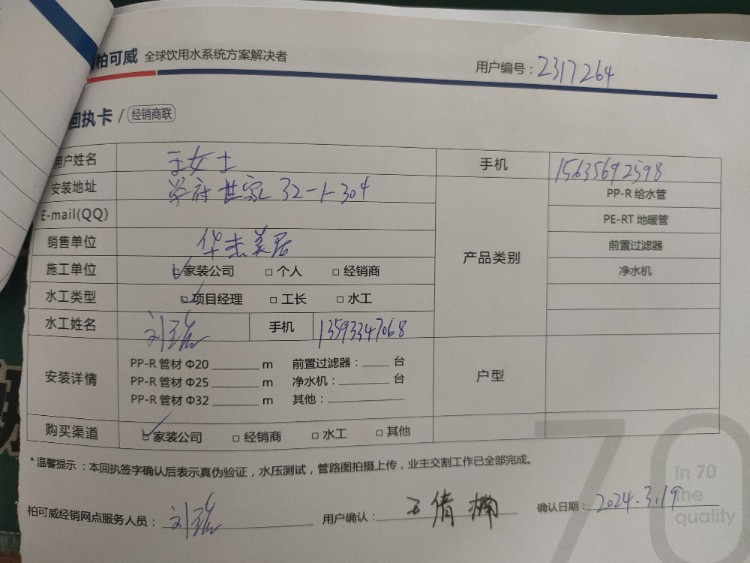 柏可威 全球饮用水系统方案解决者
用户编号：2317264
回执卡 / 经销商联
用户姓名 王女士 手机 15635692598
安装地址 学府世家 32-1-304 产品类别 PP-R 给水管
E-mail(QQ) PE-RT 地暖管
销售单位 华杰美居 前置过滤器
施工单位 家装公司 □ 个人 □ 经销商 净水机
水工类型 项目经理 □ 工长 □ 水工
水工姓名 刘 手机 13593347068
安装详情 PP-R 管材 Φ20 ______ m 前置过滤器：____ 台 户型
PP-R 管材 Φ25 ______ m 净水机：____ 台
PP-R 管材 Φ32 ______ m 其他：______
购买渠道 家装公司 □ 经销商 □ 水工 □ 其他
* 温馨提示：本回执签字确认后表示真伪验证，水压测试，管路图拍摄上传，业主交割工作已全部完成。
柏可威经销网点服务人员：刘 用户确认：王倩楠 确认日期：2024.3.19
70
In 70
the
quality